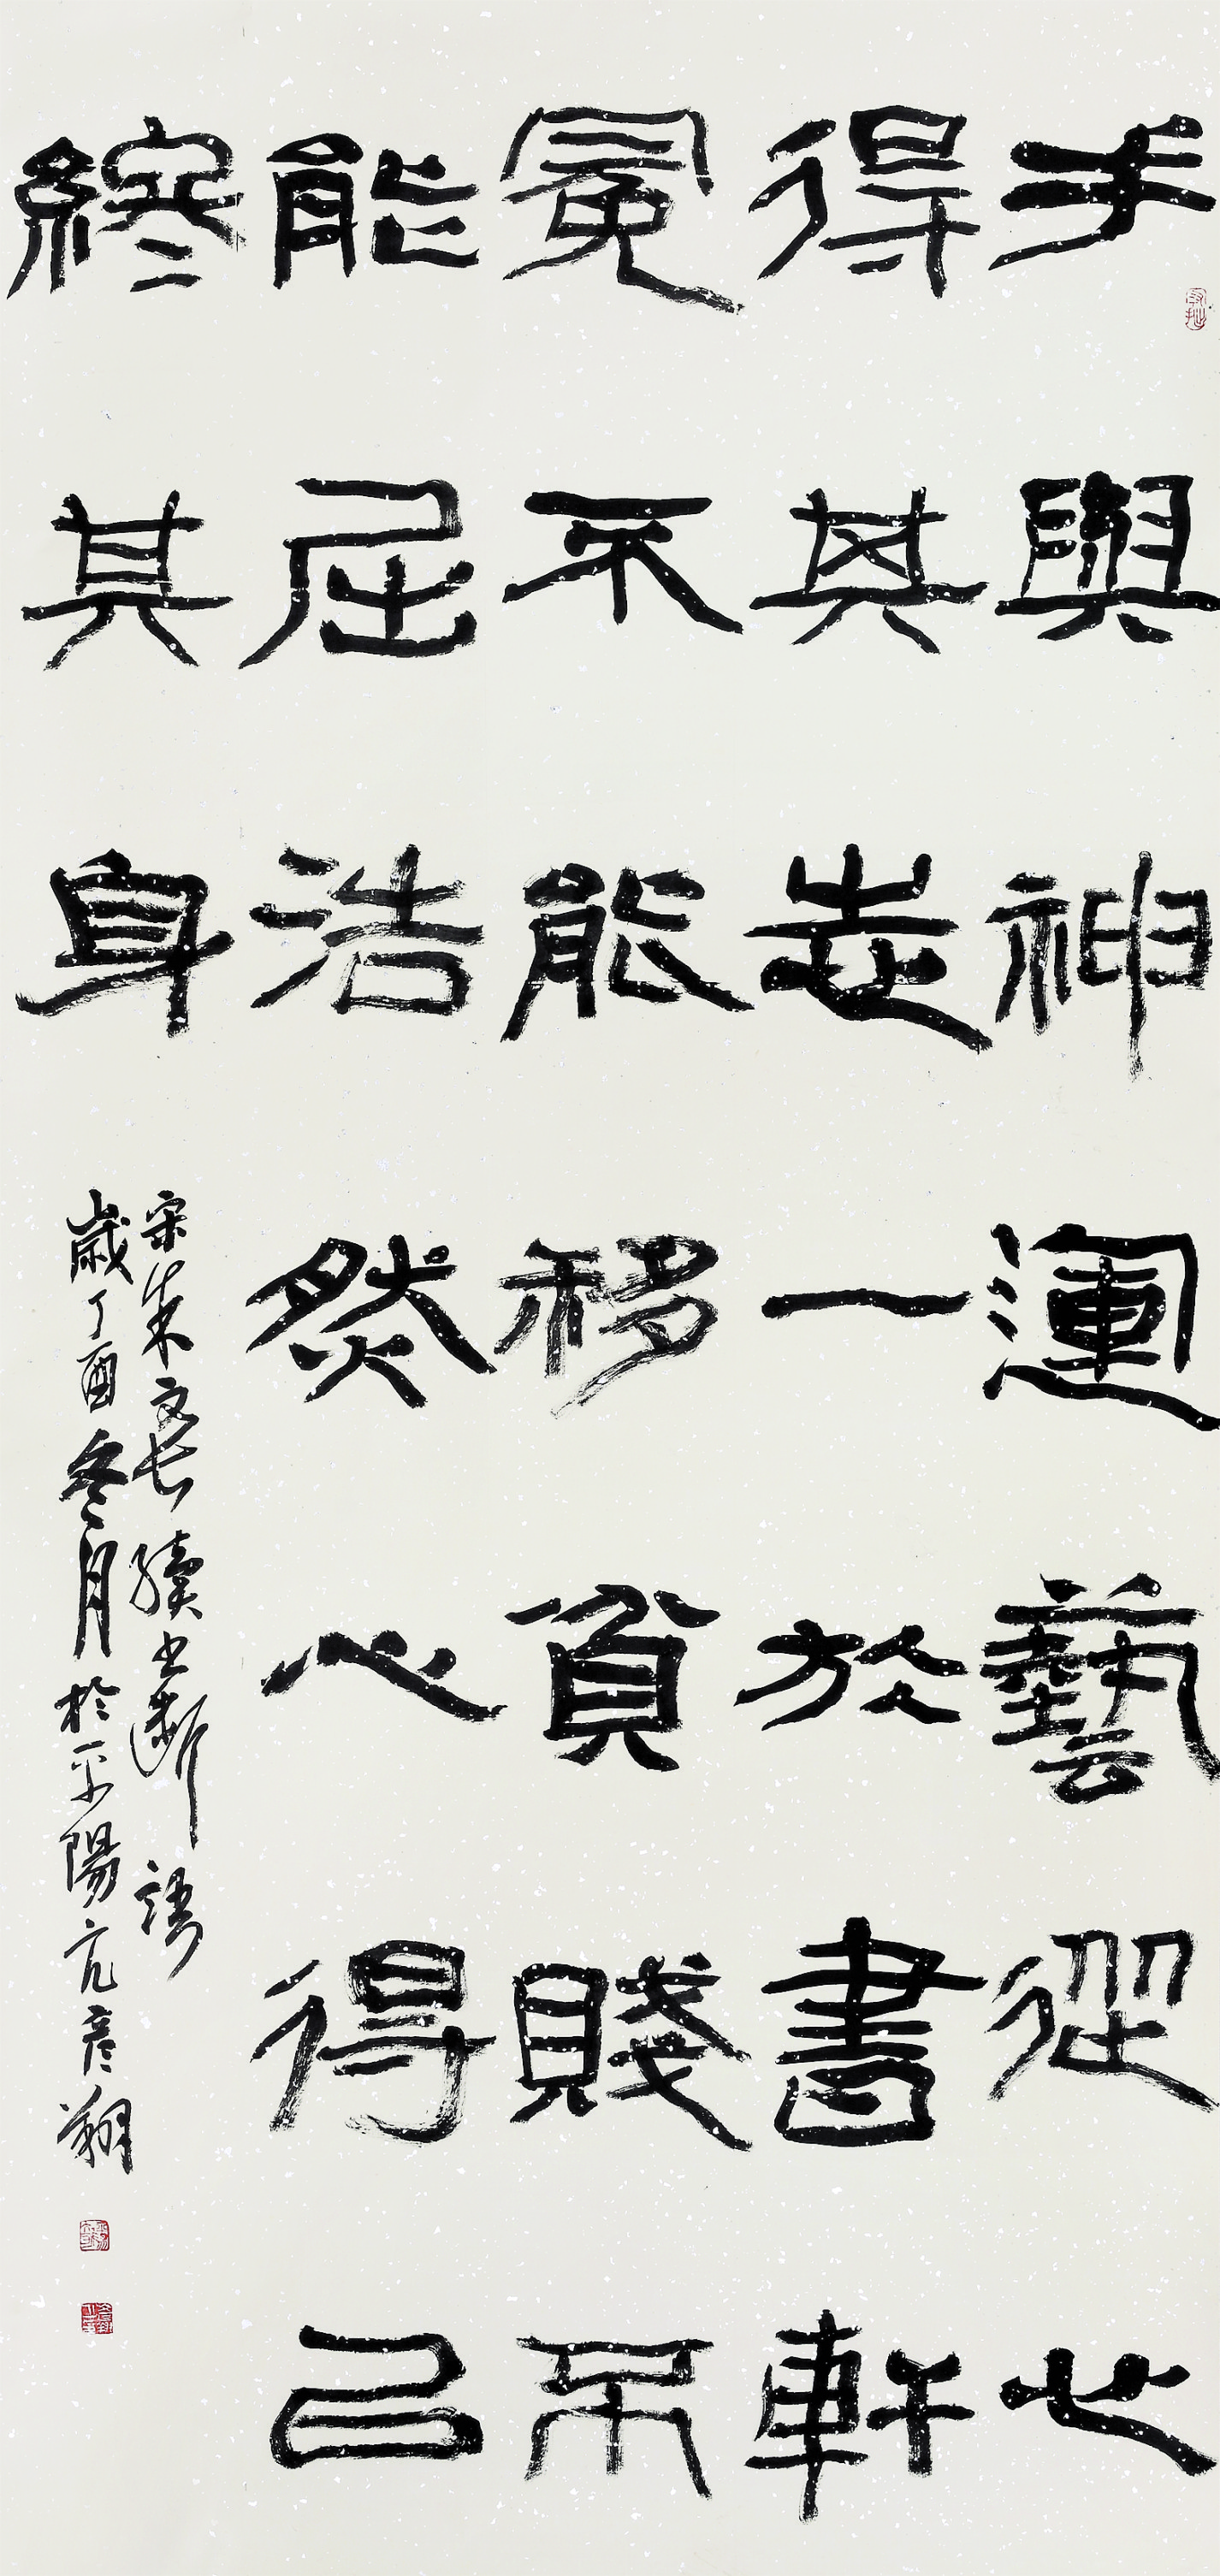 手與神運藝從心
得其志一於書軒
冕不能移貧賤不
能屈浩然心得以
終其身
宋朱文長續書斷語
歲丁酉冬月於平陽亢彥翔